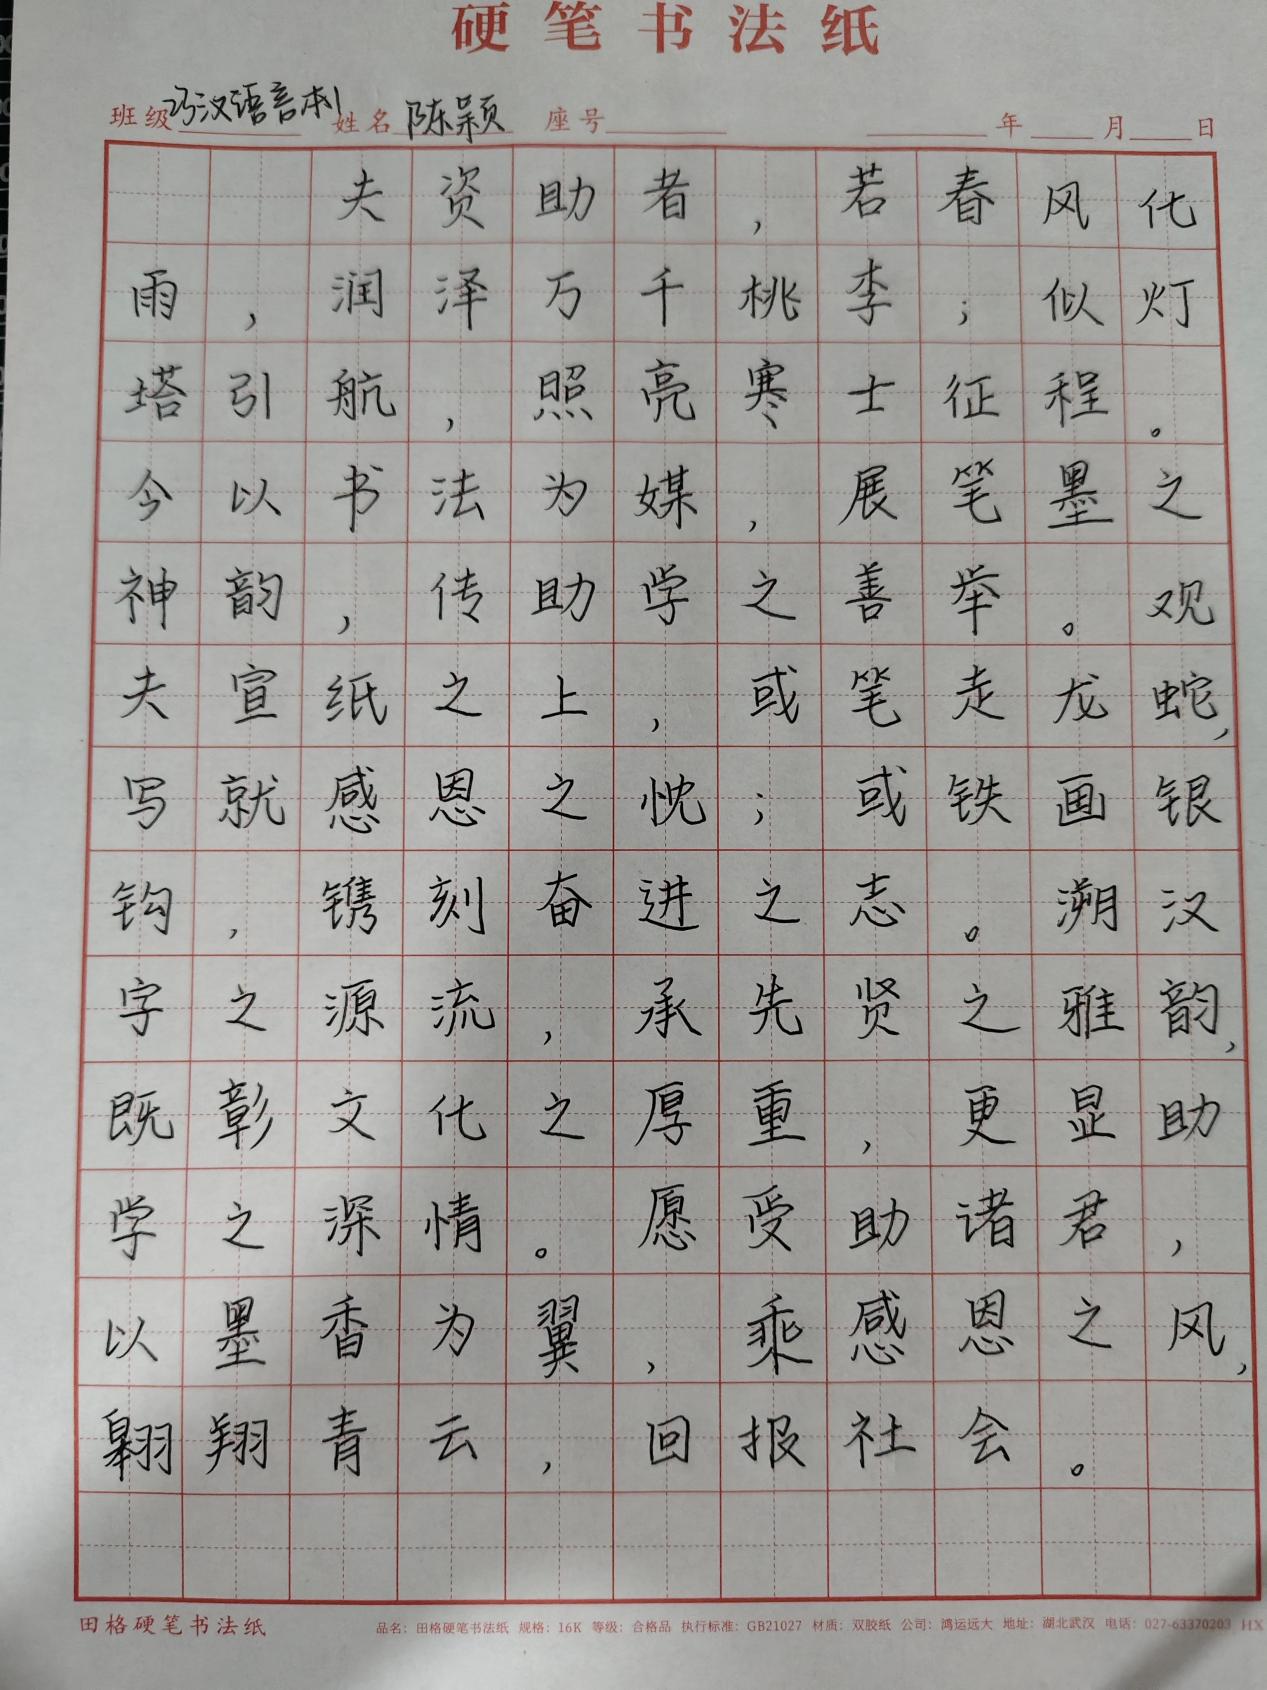 硬笔书法纸
班级 汉语言本1 姓名 陈颖 座号 年 月 日
夫资助者,若春风化
雨,润泽万千桃李;似灯
塔引航,照亮寒士征程。
今以书法为媒,展笔墨之
神韵,传助学之善举。观
夫宣纸之上,或笔走龙蛇,
写就感恩之忱;或铁画银
钩,镌刻奋进之志。溯汉
字之源流,承先贤之雅韵,
既彰文化之厚重,更显助
学之深情。愿受助诸君,
以墨香为翼,乘感恩之风,
翱翔青云,回报社会。
田格硬笔书法纸 品名:田格硬笔书法纸 规格:16K 等级:合格品 执行标准:GB21027 材质:双胶纸 公司:鸿运远大 地址:湖北武汉 电话:027-63370203 HX